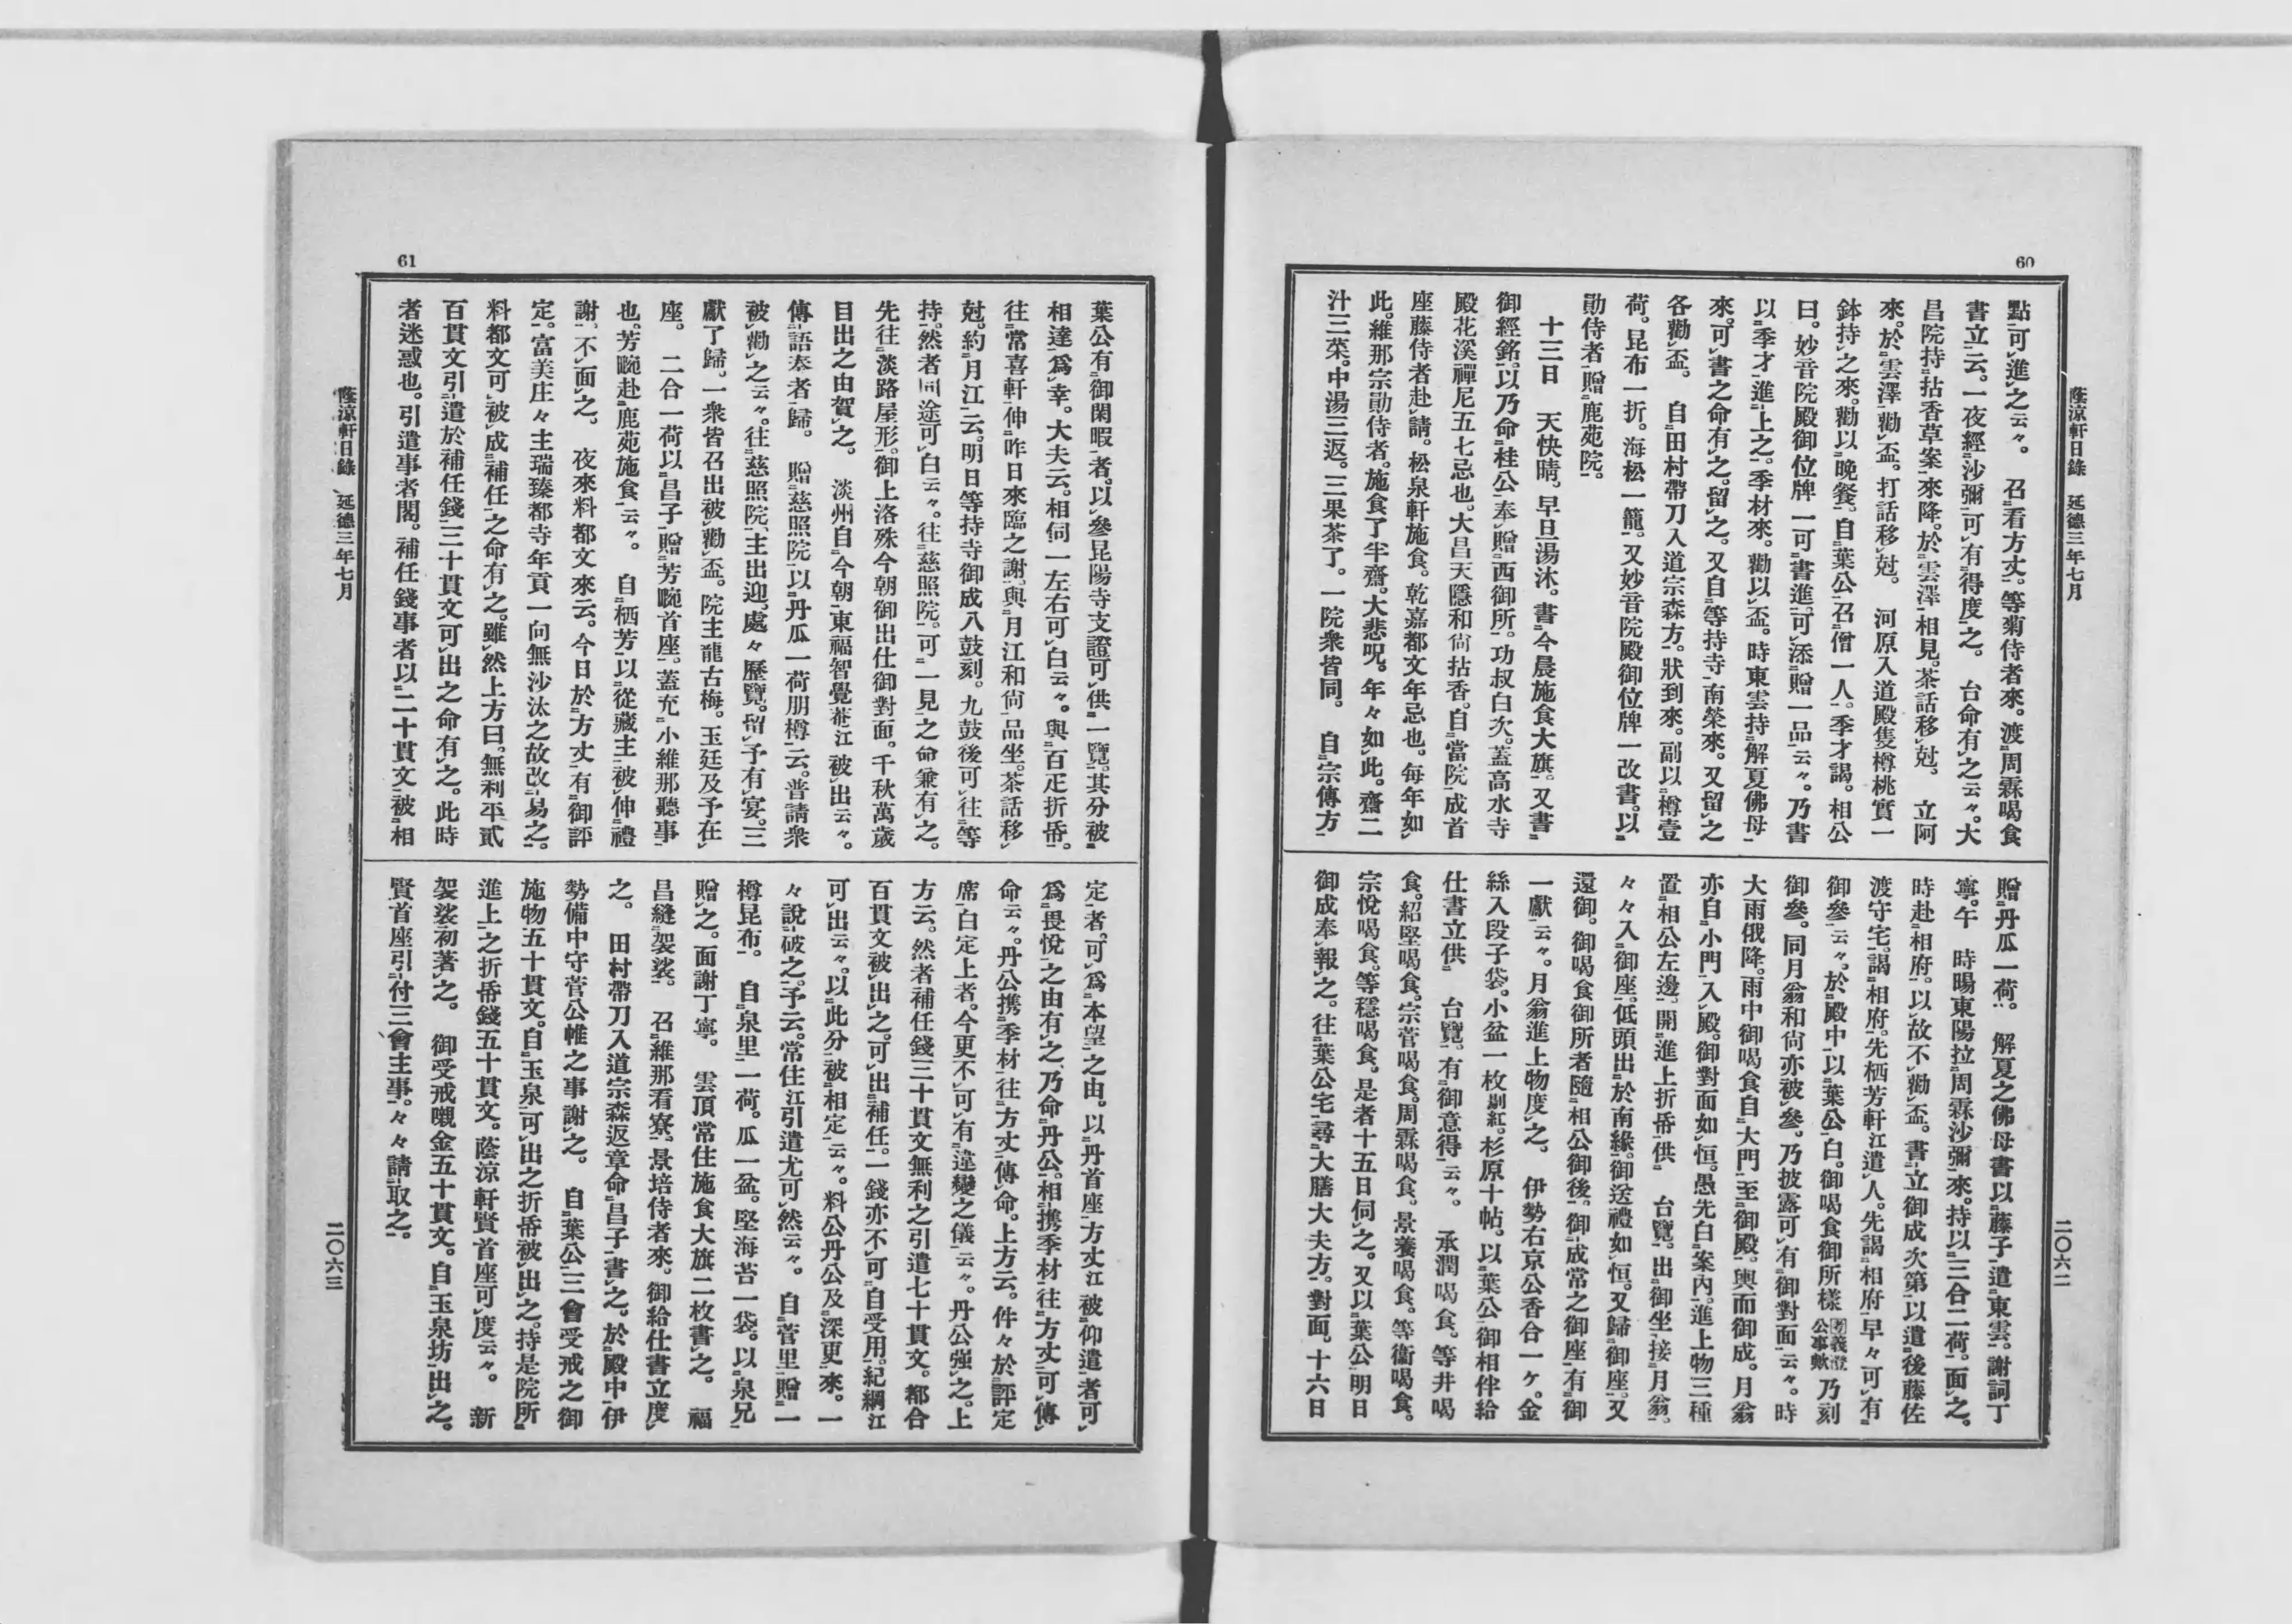 60
蔭涼軒日錄　延德三年七月
二〇六二
點可㆑進㆑之云々。　召㆓看方丈㆒。等菊侍者來。渡㆓周霖喝食
書立㆒云。一夜經㆓沙彌㆒可㆑有㆓得度㆒之。　台命有㆑之云々。大
昌院持㆓拈香草案㆒來降。於㆓雲澤㆒相見。茶話移㆑尅。　立阿
來。於㆓雲澤㆒勸㆑盃。打話移㆑尅。　河原入道殿隻樽桃實一
鉢持㆑之來。勸以㆓晚餐㆒。自㆓葉公㆒召㆓僧一人㆒。季才謁㆓相公㆒
曰。妙音院殿御位牌一可㆓書進㆒。可㆑添㆓贈一品㆒云々。乃書
以㆓季才㆒進㆓上之㆒。季材來。勸以㆑盃。時東雲持㆓解夏佛母㆒
來。可㆑書之命有㆑之。留㆑之。又自㆓等持寺㆒南榮來。又留㆑之
各勸㆑盃。　自㆓田村帶刀入道宗森方㆒。狀到來。副以㆓樽壹
荷。昆布一折。海松一籠㆒。又妙音院殿御位牌一改書。以㆓
勛侍者㆒贈㆓鹿苑院㆒。
十三日　天快晴。早旦湯沐。書㆓今晨施食大旗㆒。又書㆓
御經銘㆒。以乃命㆓桂公㆒奉㆑贈㆓西御所㆒。功叔白㆑次。蓋高水寺
殿花溪禪尼五七忌也。大昌天隱和尙拈香。自㆓當院㆒成首
座藤侍者赴㆑請。松泉軒施食。乾嘉都文年忌也。每年如㆑
此。維那宗勛侍者。施食了半齋。大悲呪。年々如㆑此。齋二
汁三菜。中湯三返。三果茶了。一院衆皆同。　自㆓宗傳方㆒
贈㆓丹瓜一荷㆒。　解夏之佛母書以㆓藤子㆒遣㆓東雲㆒。謝詞丁
寧。午　時暘東陽拉㆓周霖沙彌㆒來。持以㆓三合二荷㆒。面㆑之。
時赴㆓相府㆒。以㆑故不㆑勸㆑盃。書㆓立御成次第㆒以遣㆓後藤佐
渡守宅㆒。謁㆓相府㆒。先栖芳軒江遣㆑人。先謁㆓相府㆒早々可㆑有㆓
御參㆒云々。於㆓殿中㆒以㆓葉公㆒白。御喝食御所樣公事歟乃刻
御參。同月翁和尙亦被㆑參。乃披露可㆑有㆓御對面㆒云々。時
大雨俄降。雨中御喝食自㆓大門㆒至㆓御殿㆒。輿而御成。月翁
亦自㆓小門㆒入㆑殿。御對面如㆑恒。愚先白㆓案內㆒。進上物三種
置㆓相公左邊㆒。開㆓進上折帋㆒供㆓　台覽㆒。出㆓御坐㆒接㆓月翁㆒。
々々入㆓御座㆒。低頭出㆓於南緣㆒。御送禮如㆑恒。又歸㆓御座㆒。又
還御。御喝食御所者隨㆓相公御後㆒。御㆓成常之御座㆒有㆓御
一獻㆒云々。月翁進上物度㆑之。　伊勢右京公香合一ケ。金
絲入段子袋。小盆一枚剔紅。杉原十帖。以㆓葉公㆒御相伴給
仕書立供㆓　台覽㆒。有㆓御意得㆒云々。　承潤喝食。等井喝
食。紹堅喝食。宗菅喝食。周霖喝食。景養喝食。等衞喝食。
宗悅喝食。等穩喝食。是者十五日伺㆑之。又以㆓葉公㆒明日
御成奉㆑報㆑之。往㆓葉公宅㆒尋㆓大膳大夫方㆒。對面。十六日
61
蔭涼軒日錄　延德三年七月
二〇六三
葉公有㆓御閑暇㆒者。以㆓參昆陽寺支證㆒可㆑供㆓一覽㆒。其分被㆓
相達㆒爲㆑幸。大夫云。相伺一左右可㆑白云々。與㆓百疋折帋㆒。
往㆓常喜軒㆒伸㆓昨日來臨之謝㆒。與㆓月江和尙㆒品坐。茶話移㆑
尅。約㆓月江㆒云。明日等持寺御成八鼓刻。九鼓後可㆑往㆓等
持㆒。然者同途可㆑白云々。往㆓慈照院㆒。可㆓一見㆒之命兼有㆑之。
先往㆓淡路屋形㆒。御上洛殊今朝御出仕御對面。千秋萬歲
目出之由賀㆑之。　淡州自㆓今朝㆒東福智覺菴江被㆑出云々。
傳㆓語奏者㆒歸。　贈㆓慈照院㆒以㆓丹瓜一荷朋樽㆒云。普請衆
被㆑勸㆑之云々。往㆓慈照院㆒。主出迎。處々歷覽。留㆑予有㆑宴。三
獻了歸。一衆皆召出被㆑勸㆑盃。院主龍古梅。玉廷及予在㆑
座。　二合一荷以㆓昌子㆒贈㆓芳畹首座㆒。蓋充㆓小維那聽事㆒
也。芳畹赴㆓鹿苑施食㆒云々。　自㆓栖芳㆒以㆓從藏主㆒被㆑伸㆓禮
謝㆒。不㆑面㆑之。　夜來料都文來云。今日於㆓方丈㆒有㆓御評
定㆒。富美庄々主瑞臻都寺年貢一向無沙汰之故改㆓易之㆒。
料都文可㆑被㆑成㆓補任㆒之命有㆑之。雖㆑然上方曰。無利平貳
百貫文引㆓遣於補任錢㆒三十貫文可㆑出之命有㆑之。此時
者迷惑也。引遣事者閣。補任錢事者以㆓二十貫文㆒被㆓相
定㆒者。可㆑爲㆓本望㆒之由。以㆓丹首座㆒方丈江被㆓仰遣㆒者可㆑
爲㆓畏悅㆒之由有㆑之。乃命㆓丹公㆒。相㆓携季材㆒往㆓方丈㆒可㆑傳㆑
命云々。丹公携㆓季材㆒往㆓方丈㆒傳㆑命。上方云。件々於㆓評定
席㆒白定上者。今更不㆑可㆑有㆓違變之儀㆒云々。丹公强㆑之。上
方云。然者補任錢三十貫文無利之引遣七十貫文。都合
百貫文被㆑出㆑之。可㆑出㆓補任㆒。一錢亦不㆑可㆓自受用㆒。紀綱江
可㆑出云々。以㆓此分㆒被㆓相定㆒云々。料公丹公及㆓深更㆒來。一
々說㆓破之㆒。予云。常住江引遣尤可㆑然云々。　自㆓菅里㆒贈㆓一
樽昆布㆒。　自㆓泉里㆒一荷。瓜一盆。堅海苔一袋。以㆓泉兄㆒
贈㆑之。面謝丁寧。　雲頂常住施食大旗二枚書㆑之。　福
昌縫㆓袈裟㆒。　召㆓維那看寮㆒。景培侍者來。御給仕書立度㆑
之。　田村帶刀入道宗森返章命㆓昌子㆒書㆑之。於㆓殿中㆒伊
勢備中守菅公帷之事謝㆑之。　自㆓葉公㆒三會受戒之御
施物五十貫文。自㆓玉泉㆒可㆑出之折帋被㆑出㆑之。持是院所㆓
進上㆒之折帋錢五十貫文。蔭涼軒賢首座可㆑度云々。　新
袈裟初著㆑之。　御受戒嚫金五十貫文。自㆓玉泉坊㆒出㆑之。
賢首座引㆓付三會主事㆒。々々請㆓取之㆒。